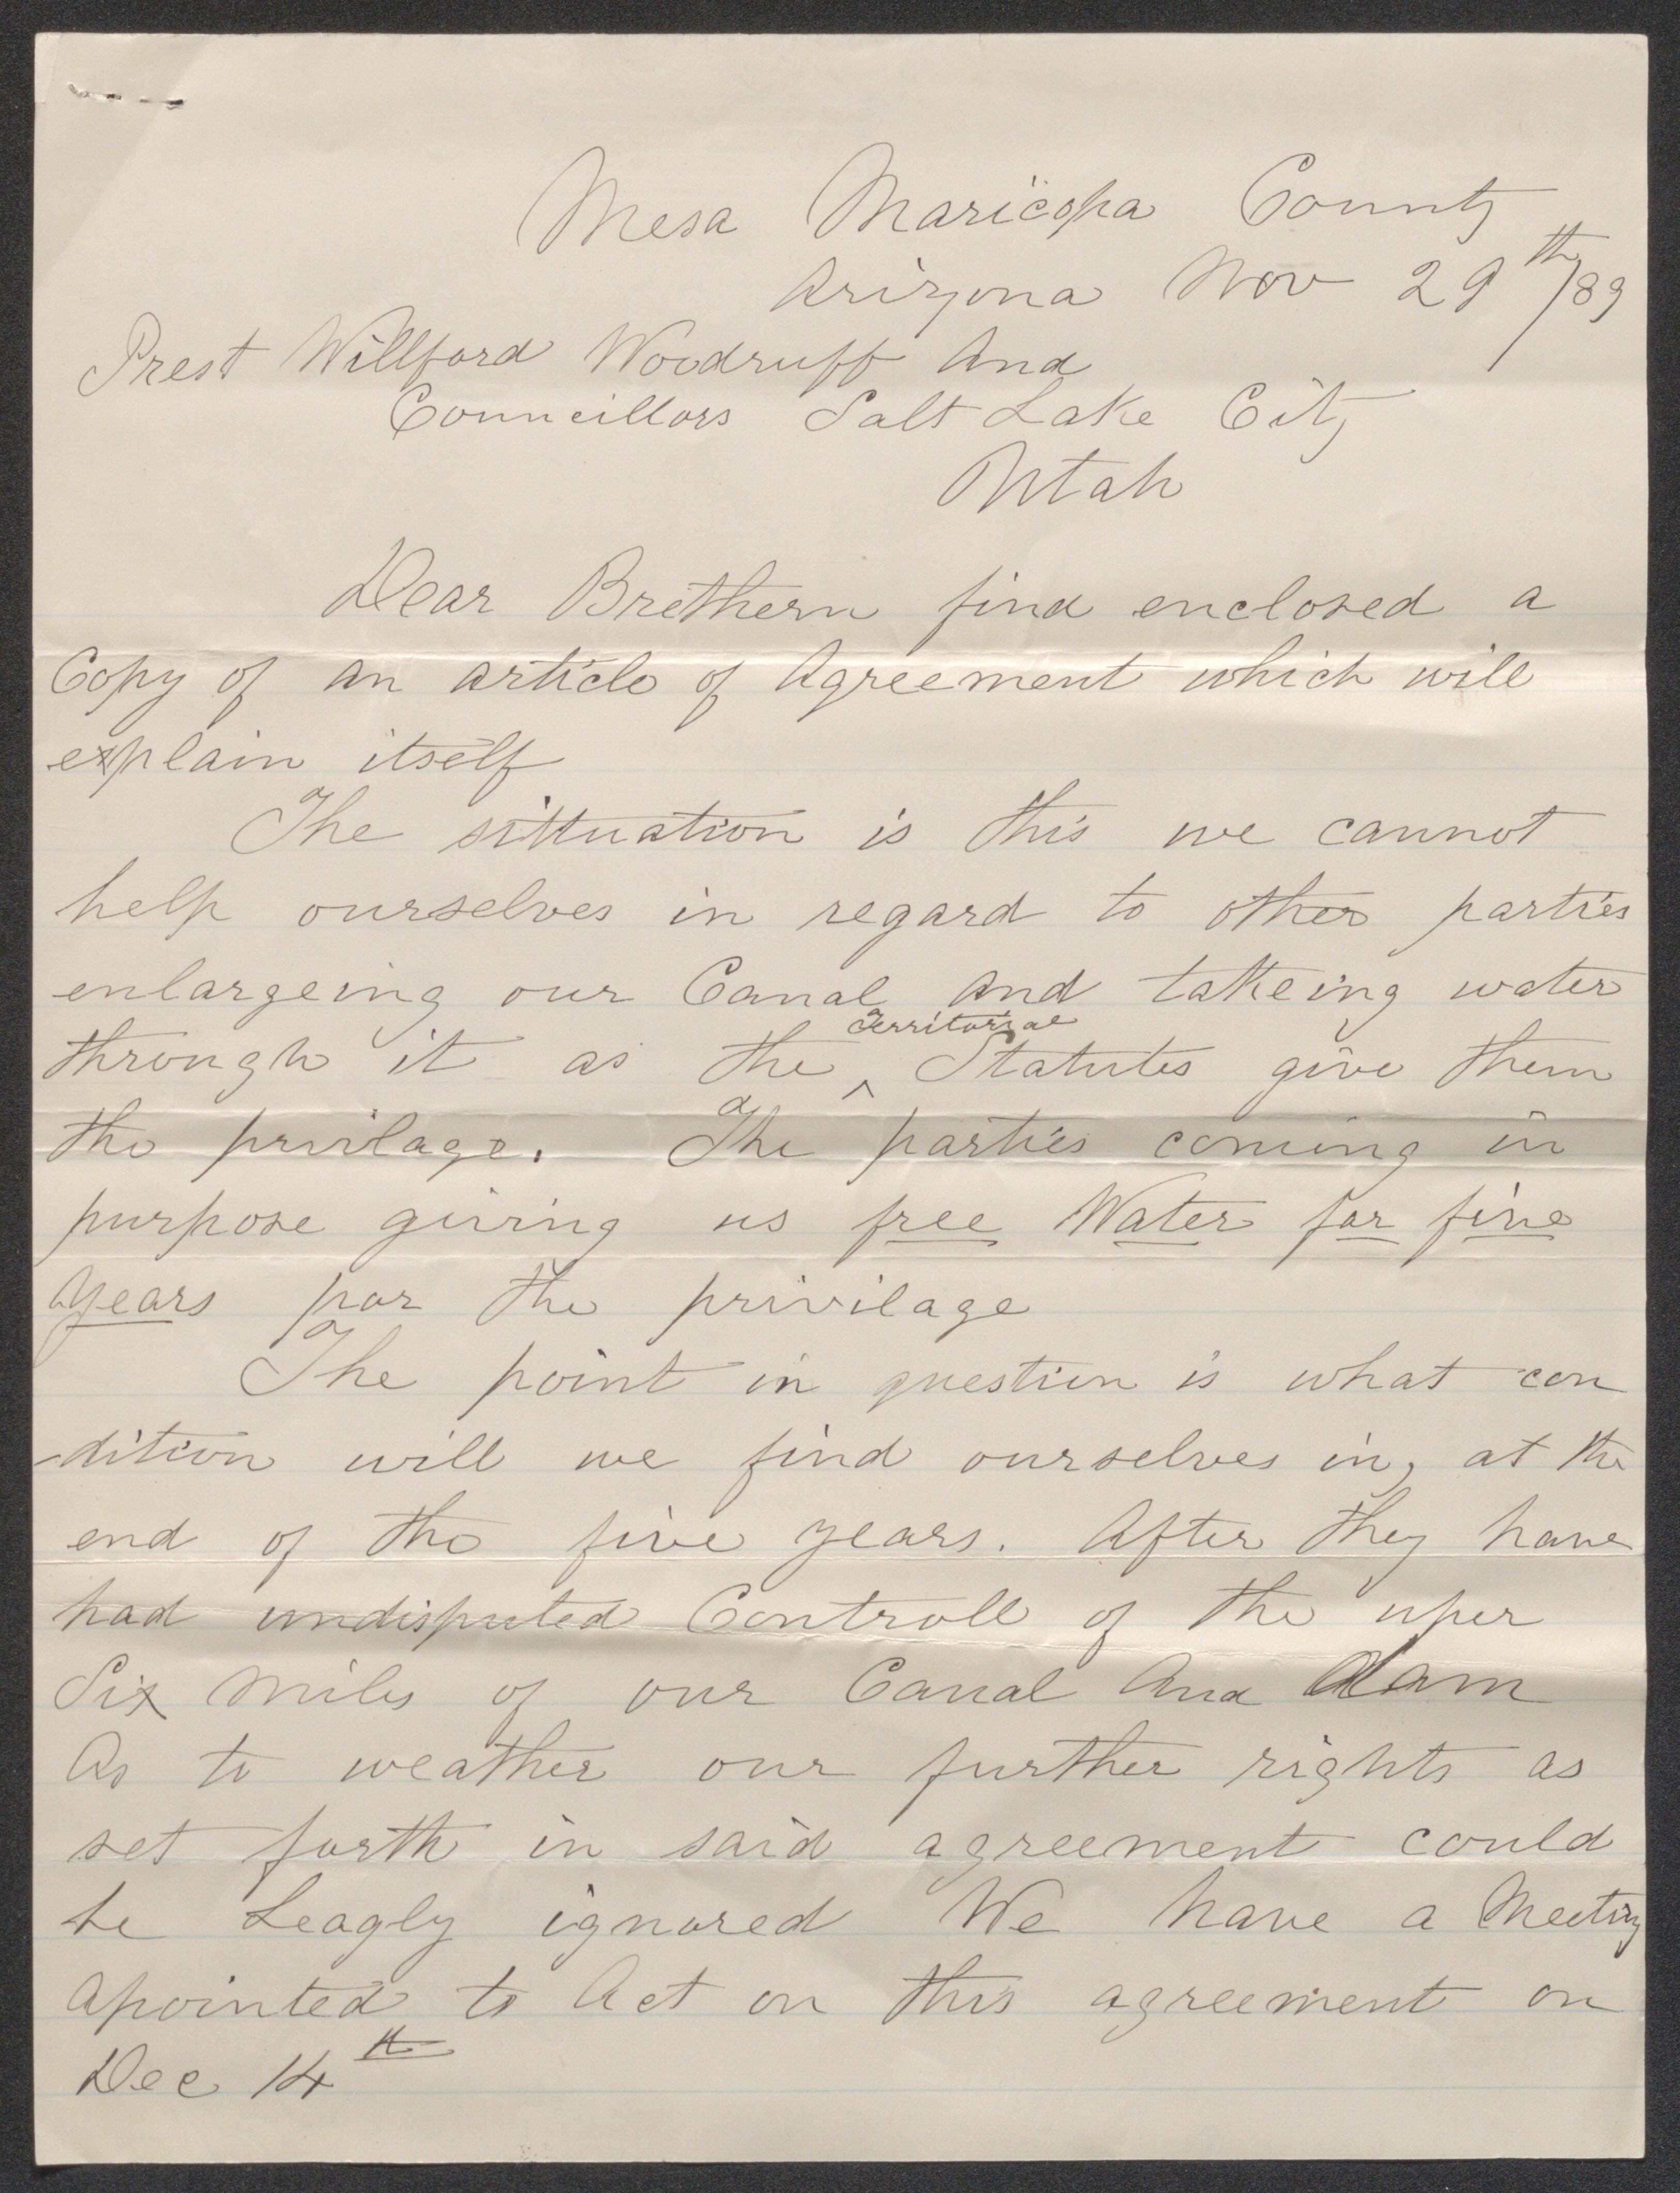 Mesa Maricopa County
Arizona Nov 29th/89
Prest Willford Woodruff And
Councillors Salt Lake City
Utah
Dear Brethern find enclosed a
Copy of an article of Agreement which will
explain itself
The sittuation is this we cannot
help ourselves in regard to other parties
enlargeing our Canal and takeing water
through it as the ^ Territorial Statutes give them
the privilage. The parties coming in
purpose giving us free Water for five
years for the privilage
The point in question is what con
-dition will we find ourselves in, at the
end of the five years. After they have
had undisputed Controll of the uper
Six miles of our Canal And dam
As to weather our further rights as
set forth in said agreement could
be Leagly ignored We have a Meeting
apointed to Act on this agreement on
Dec 14th